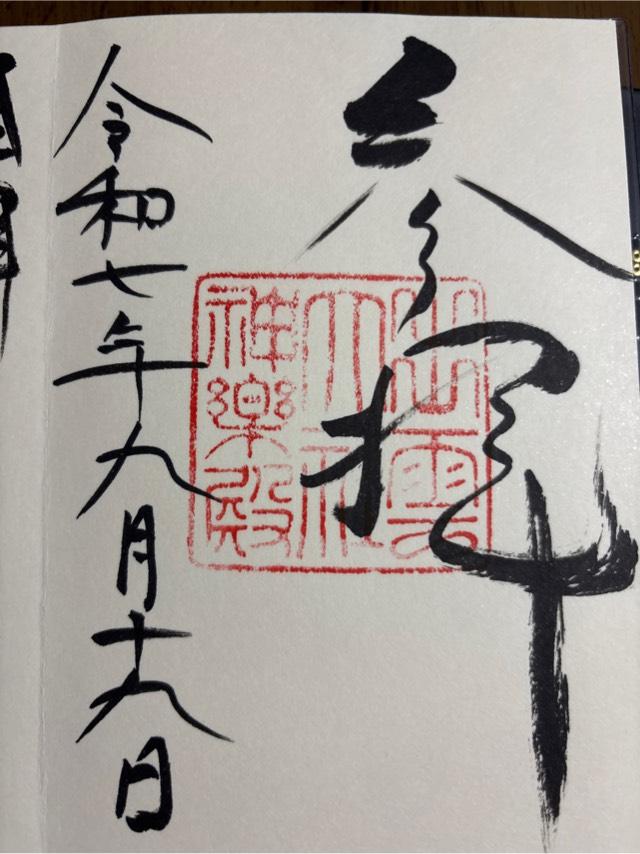 参拝
出雲
大社
神楽殿
令和七年九月十九日